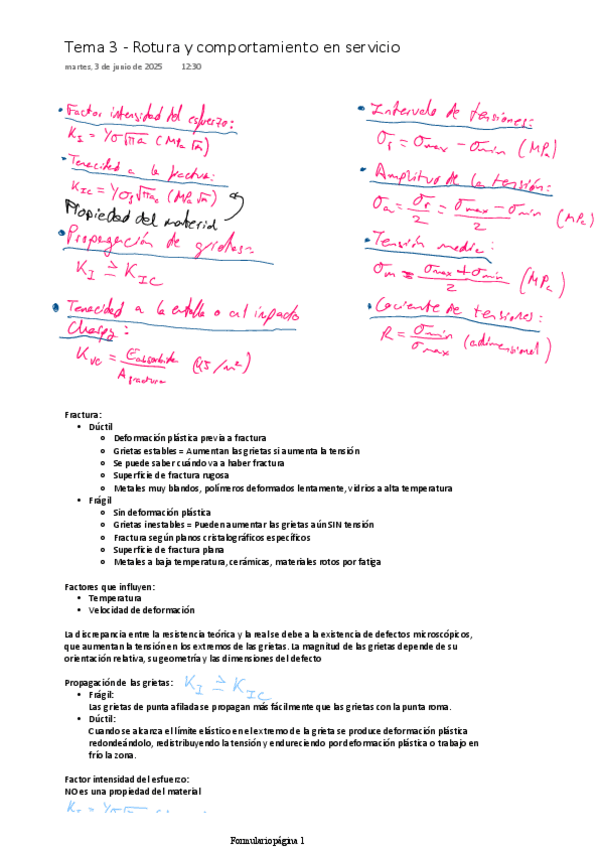 Tema 3 - Rotura y comportamiento en servicio
martes, 3 de junio de 2025 12:30
• Factor intensidad del esfuerzo:
K_I = Yσ√πa (MPa √m)
• Tenacidad a la fractura:
K_IC = Yσ_f√πa (MPa √m)
Propiedad del material
• Propagación de grietas:
K_I ≥ K_IC
• Tenacidad a la entalla o al impacto
Charpy:
K_VC = E_absorbida / A_fractura (KJ/m²)
• Intervalo de tensiones:
σ_r = σ_max - σ_min (MPa)
• Amplitud de la tensión:
σ_a = σ_r / 2 = (σ_max - σ_min) / 2 (MPa)
• Tensión media:
σ_m = (σ_max + σ_min) / 2 (MPa)
• Cociente de tensiones:
R = σ_min / σ_max (adimensional)
Fractura:
• Dúctil
○ Deformación plástica previa a fractura
○ Grietas estables = Aumentan las grietas si aumenta la tensión
○ Se puede saber cuándo va a haber fractura
○ Superficie de fractura rugosa
○ Metales muy blandos, polímeros deformados lentamente, vidrios a alta temperatura
• Frágil
○ Sin deformación plástica
○ Grietas inestables = Pueden aumentar las grietas aún SIN tensión
○ Fractura según planos cristalográficos específicos
○ Superficie de fractura plana
○ Metales a baja temperatura, cerámicas, materiales rotos por fatiga
Factores que influyen:
• Temperatura
• Velocidad de deformación
La discrepancia entre la resistencia teórica y la real se debe a la existencia de defectos microscópicos,
que aumentan la tensión en los extremos de las grietas. La magnitud de las grietas depende de su
orientación relativa, su geometría y las dimensiones del defecto
Propagación de las grietas: K_I ≥ K_IC
• Frágil:
Las grietas de punta afilada se propagan más fácilmente que las grietas con la punta roma.
• Dúctil:
Cuando se alcanza el límite elástico en el extremo de la grieta se produce deformación plástica
redondeándolo, redistribuyendo la tensión y endureciendo por deformación plástica o trabajo en
frío la zona.
Factor intensidad del esfuerzo:
NO es una propiedad del material
Formulario página 1